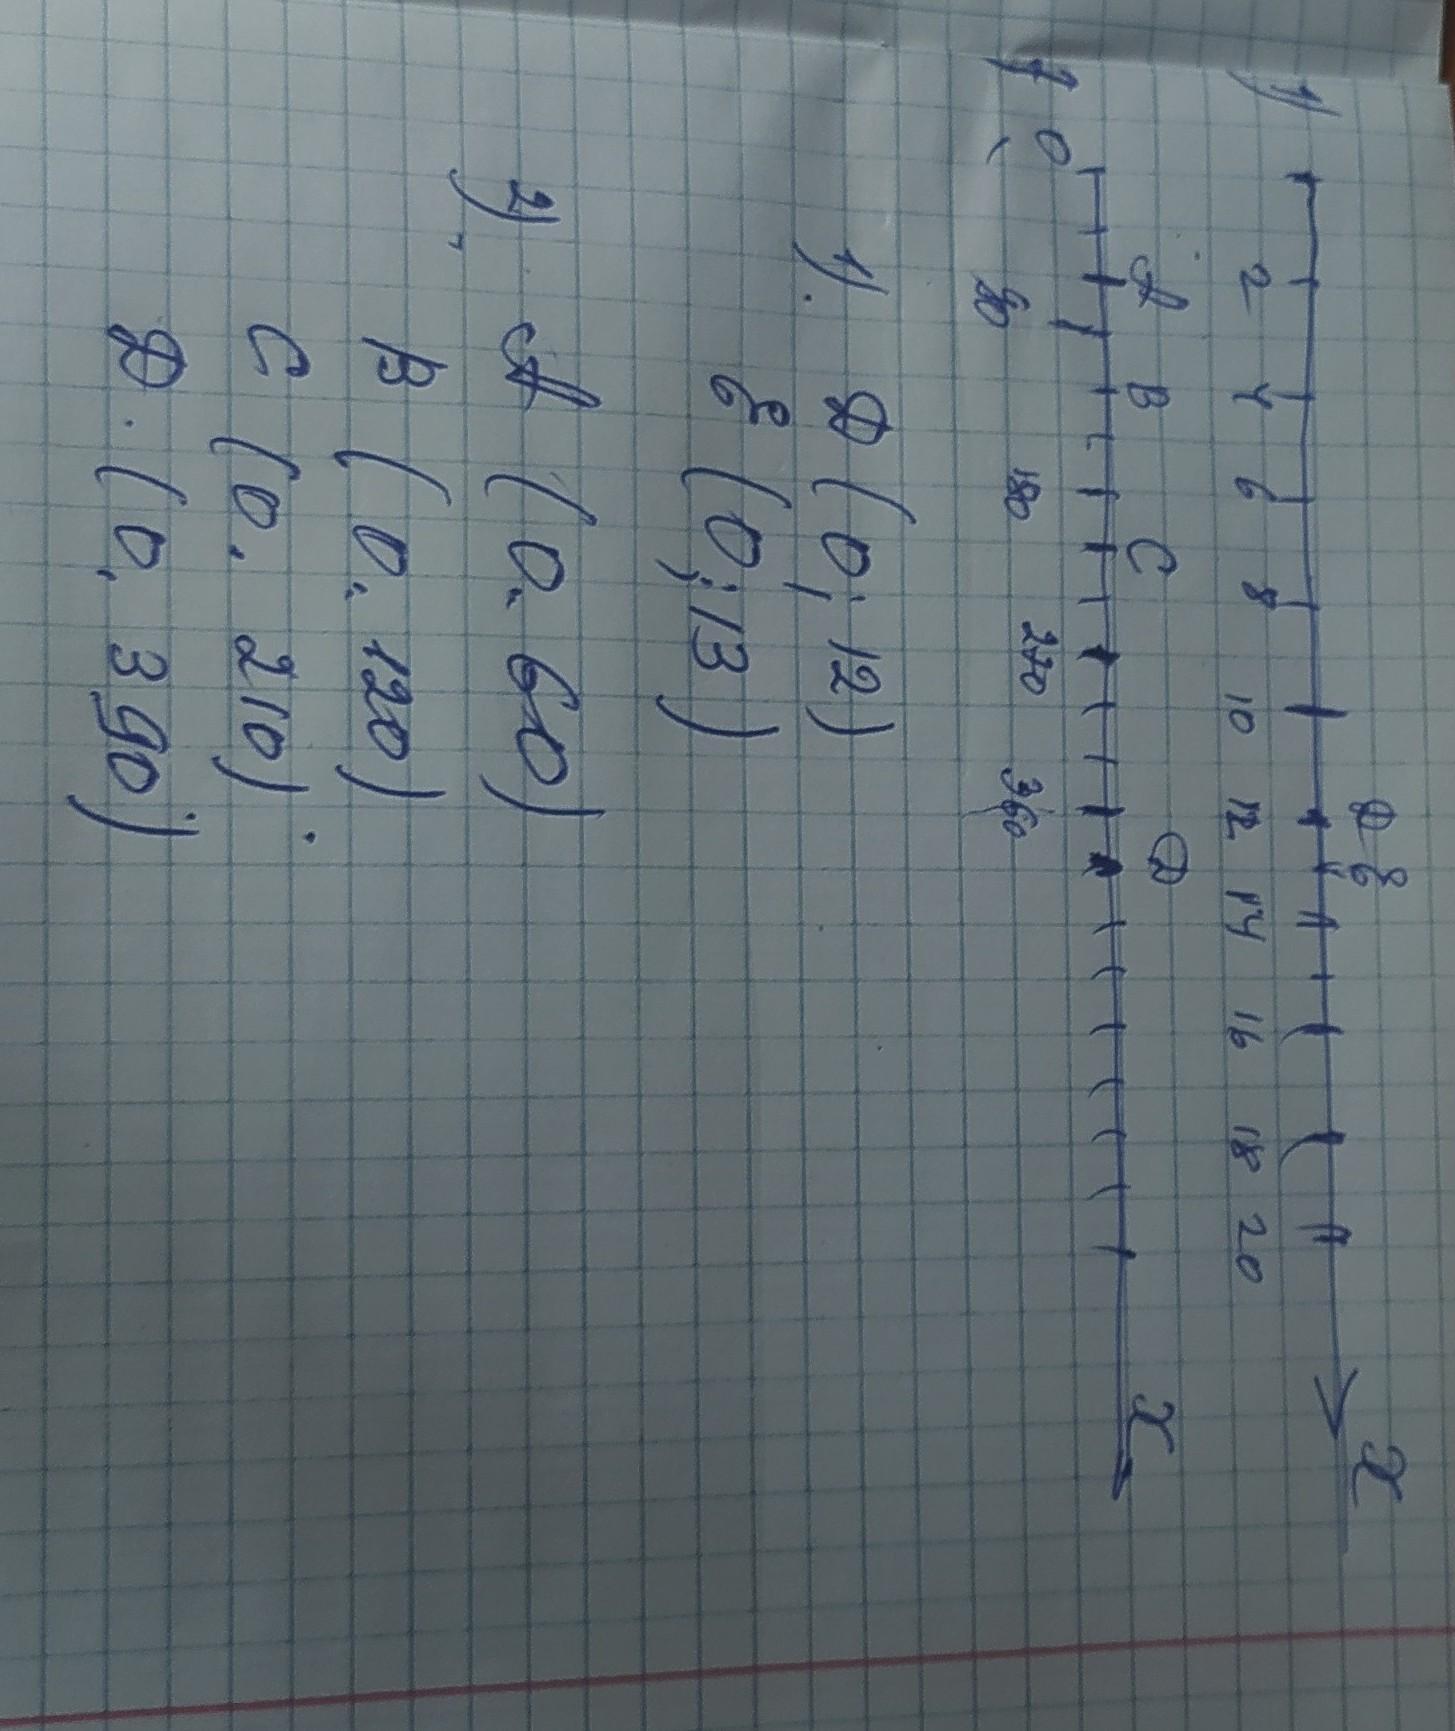 1)
D E
2 4 6 8 10 12 14 16 18 20 x
2
A B C D x
0 90 180 270 360
1). D (0; 12)
E (0; 13)
2). A (0. 60)
B (0. 120)
C (0. 210)
D. (0. 390)